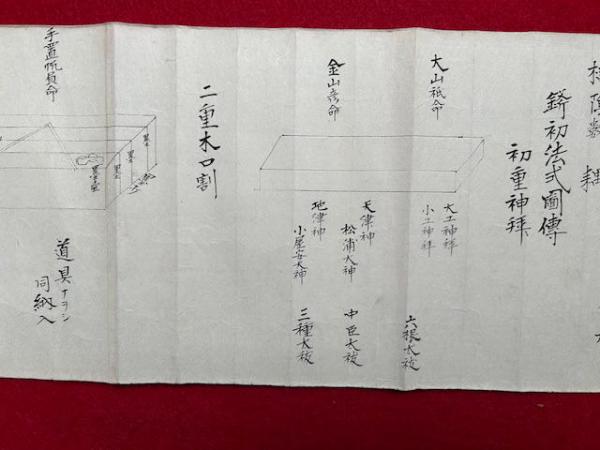 釿初法式圖傳
初重神拜
大山祇命
大工神拜
小工神拜
六根大祓
金山彦命
天津神
松浦大神
中臣大祓
地津神
小屋安大神
三種大祓
二重木口割
手置帆負命
道具ナヲシ
同納入